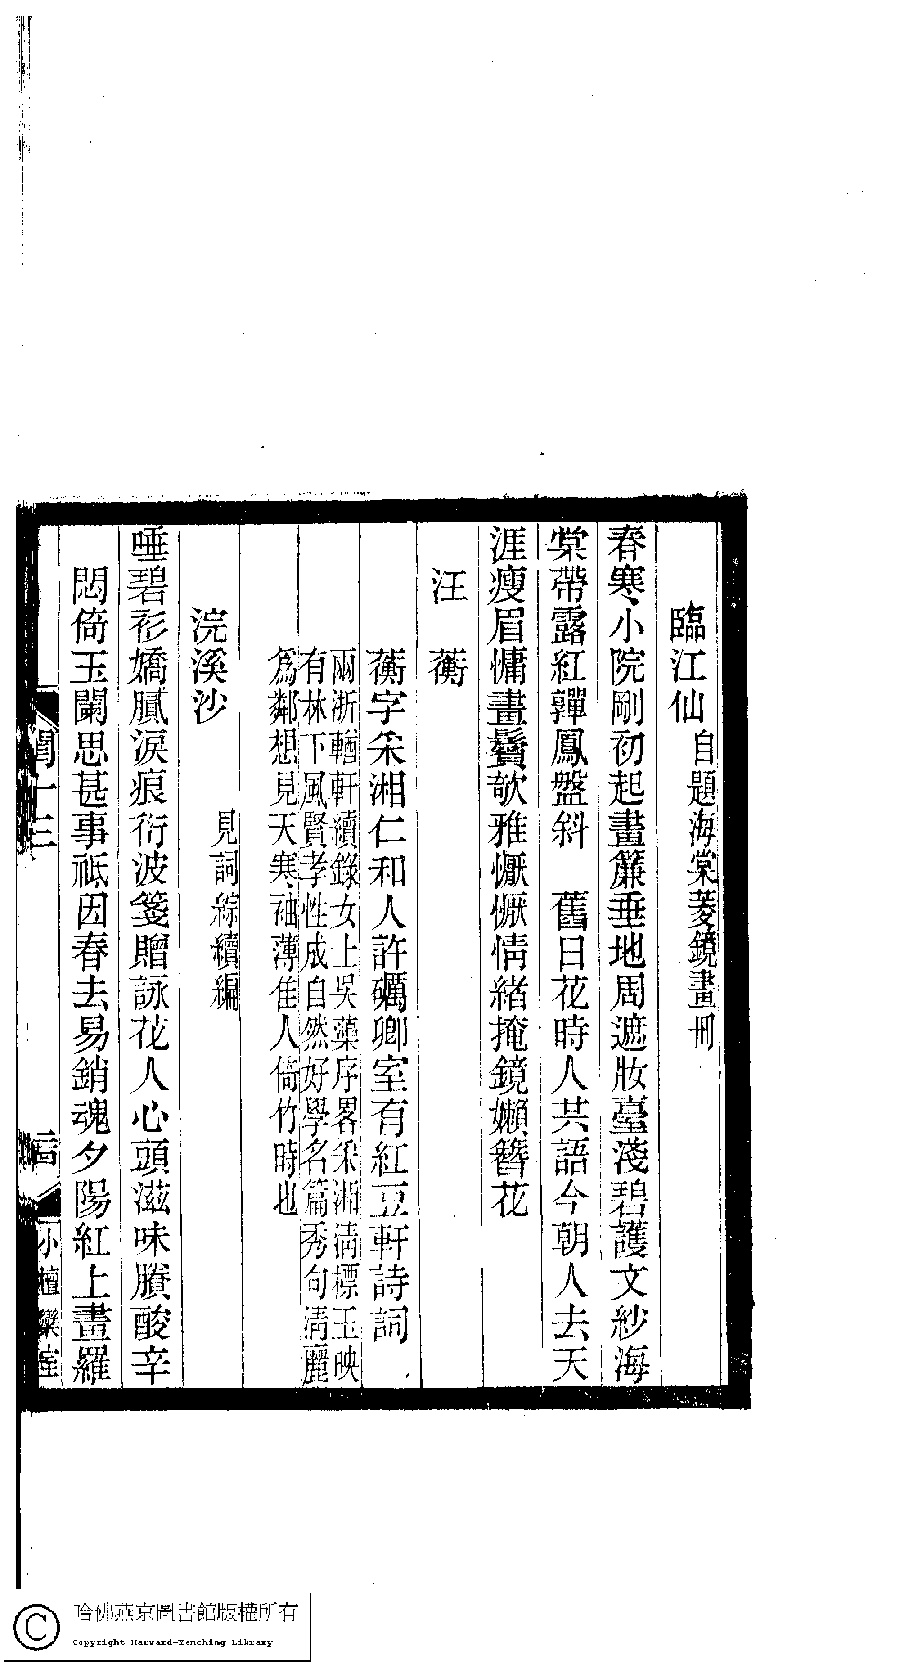 臨江仙 自題海棠菱鏡畫冊
春寒小院剛初起畫簾垂地周遮妝臺淺碧護文紗海
棠帶露紅嚲鳳盤斜　舊日花時人共語今朝人去天
涯瘦眉慵畫鬢欹雅懨懨情緒掩鏡嬾簪花
汪蘅
蘅字采湘仁和人許礪卿室有紅豆軒詩詞
兩浙輶軒續錄女士吳藻序畧采湘淸標玉映
有林下風賢孝性成自然好學名篇秀句淸麗
爲鄰想見天寒袖薄佳人倚竹時也
浣溪沙
見詞綜續編
唾碧衫嬌膩淚痕衍波箋贈詠花人心頭滋味賸酸辛
悶倚玉闌思甚事祗因春去易銷魂夕陽紅上畫羅
閨十三
小檀欒室
哈佛燕京圖書館版權所有
Copyright Harvard-Yenching Library